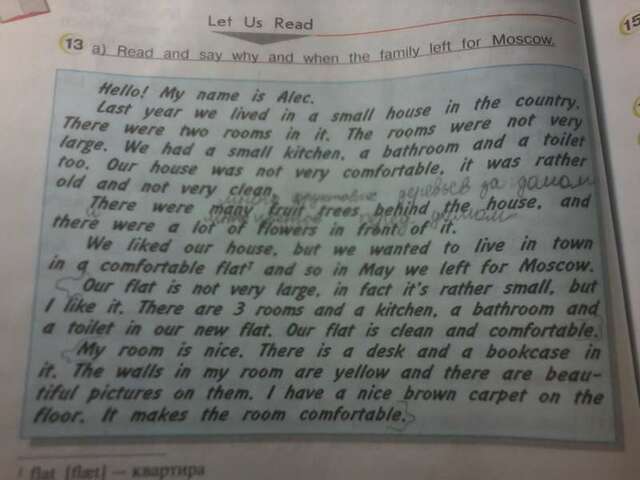 Let Us Read
13 a) Read and say why and when the family left for Moscow.
Hello! My name is Alec.
Last year we lived in a small house in the country.
There were two rooms in it. The rooms were not very
large. We had a small kitchen, a bathroom and a toilet
too. Our house was not very comfortable, it was rather
old and not very clean.
There were many fruit trees behind the house, and
there were a lot of flowers in front of it.
We liked our house, but we wanted to live in town
in a comfortable flat¹ and so in May we left for Moscow.
Our flat is not very large, in fact it's rather small, but
I like it. There are 3 rooms and a kitchen, a bathroom and
a toilet in our new flat. Our flat is clean and comfortable.
My room is nice. There is a desk and a bookcase in
it. The walls in my room are yellow and there are beau-
tiful pictures on them. I have a nice brown carpet on the
floor. It makes the room comfortable.
¹ flat [flæt] — квартира
15